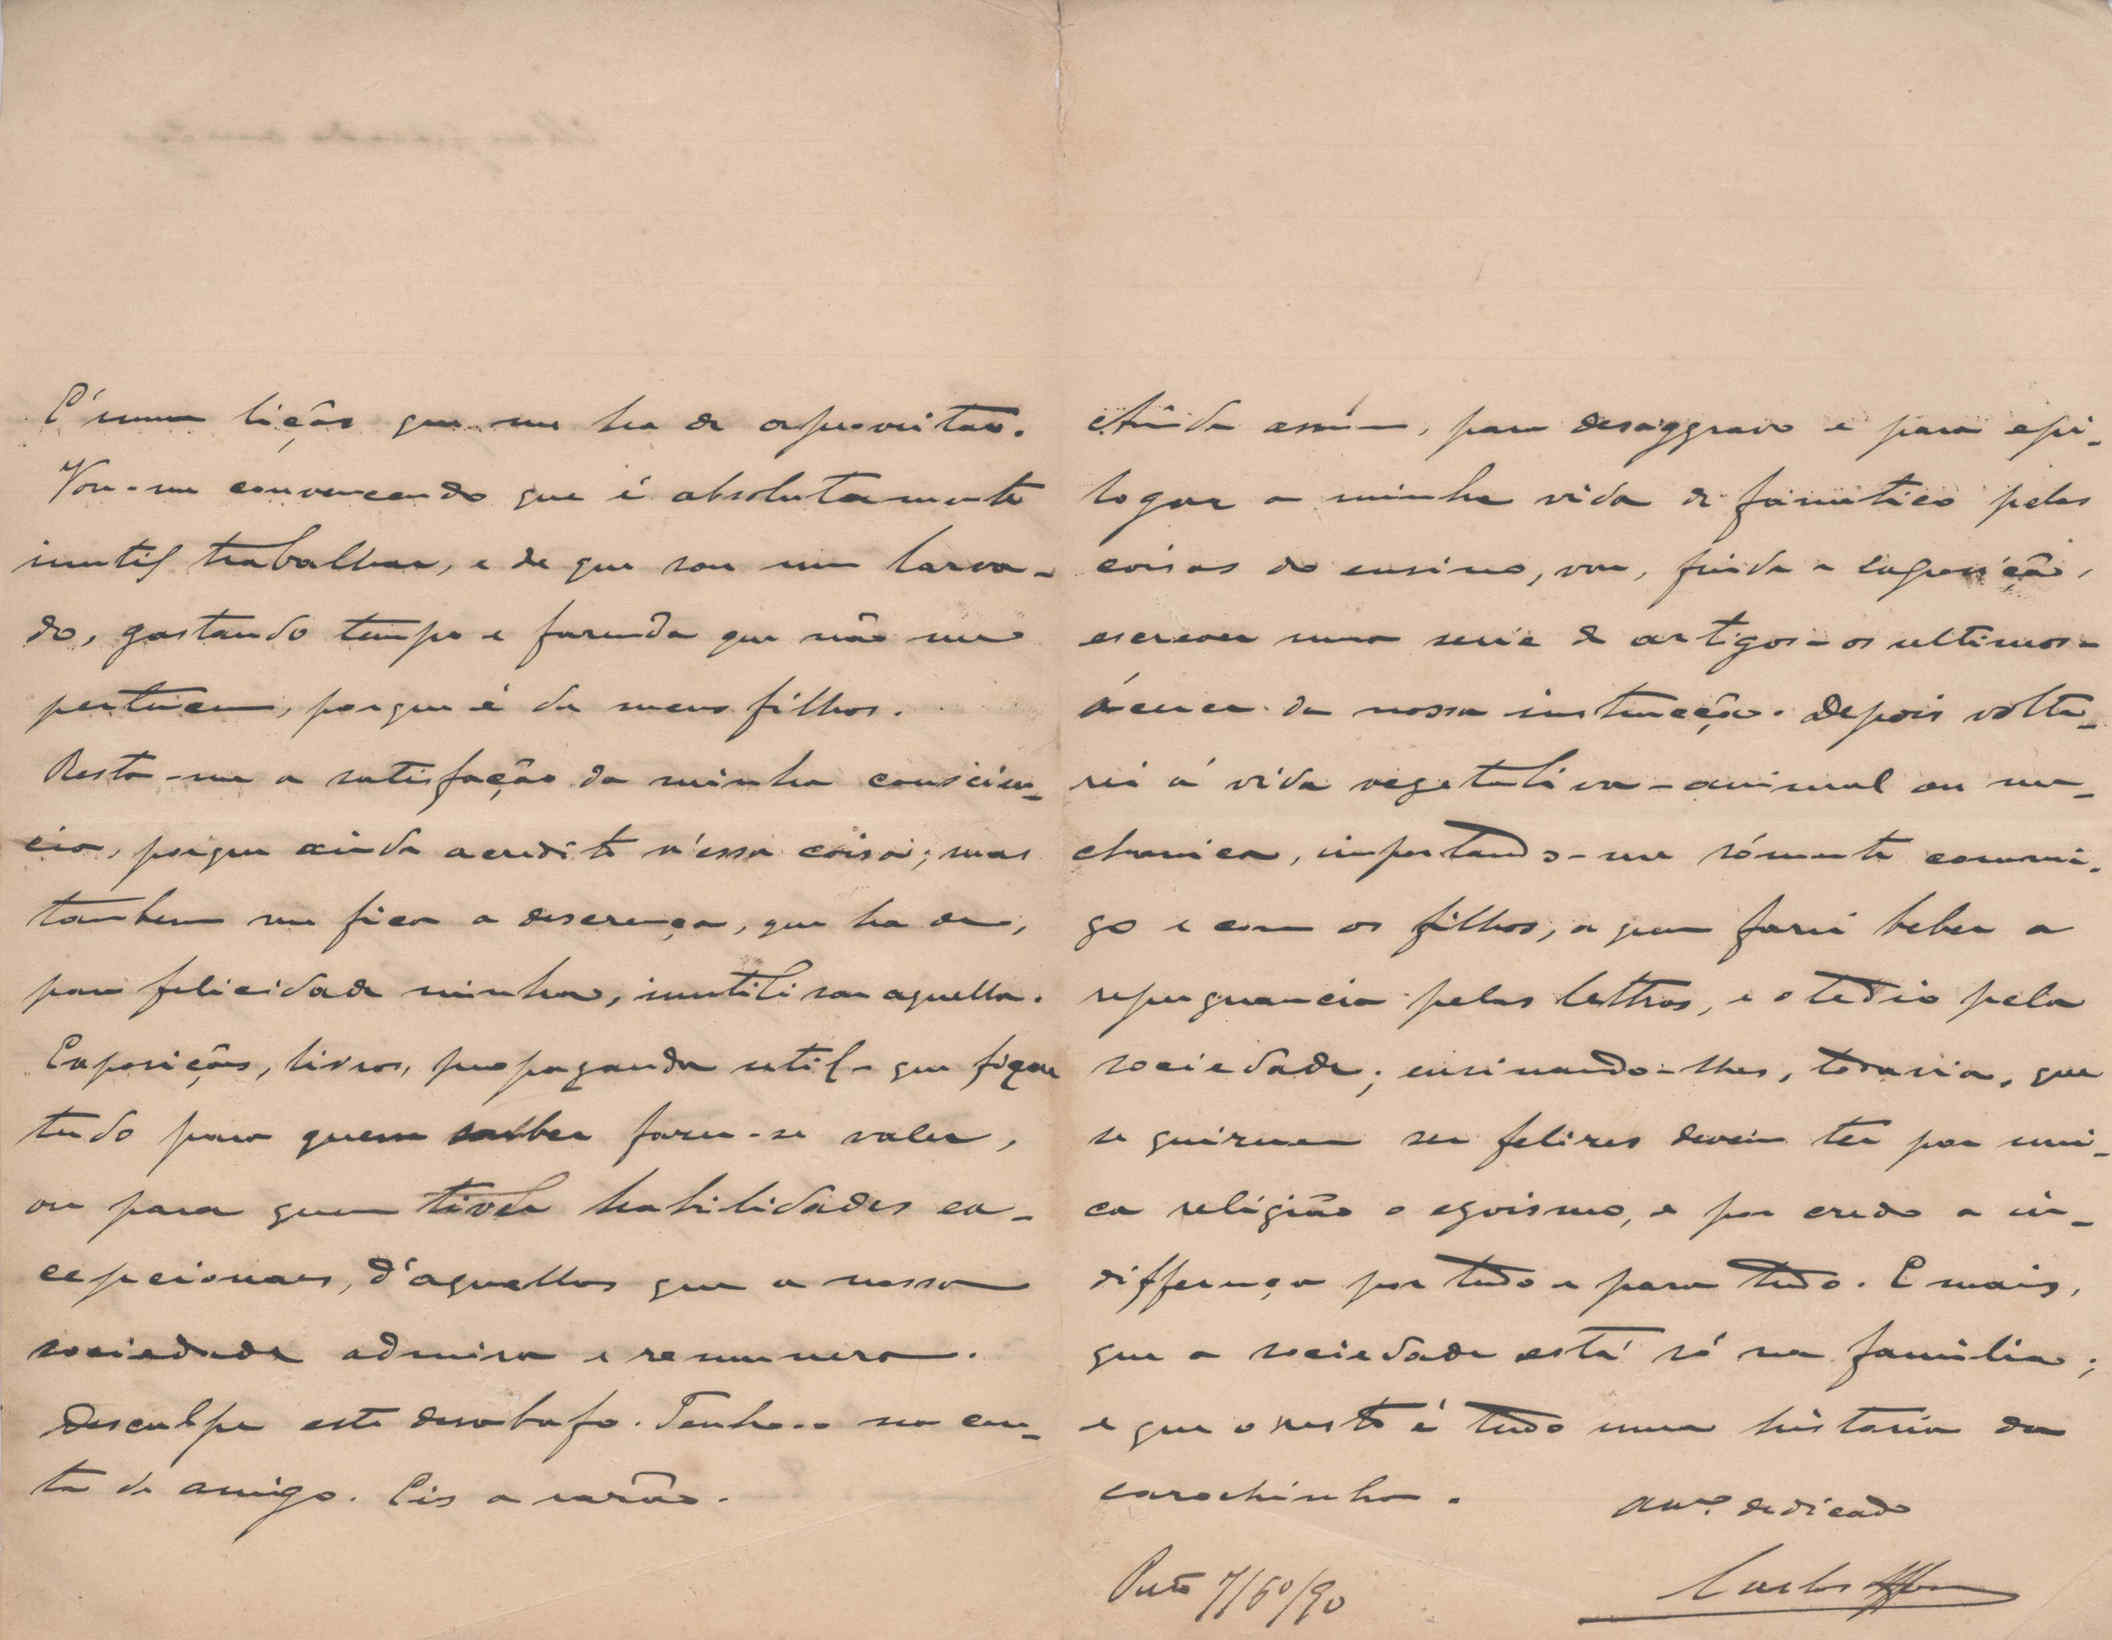 É uma lição que me ha de aproveitar.
Vou-me convencendo que é absolutamente
inutil trabalhar, e de que sou um larva-
do, gastando tempo e fazenda que não me
pertencem, porque é de meus filhos.
Resta-me a satisfação da minha conscien-
cia, porque ainda acredito n'essa coisa; mas
tambem me fica a descrença, que ha de,
para felicidade minha, inutilisar aquella.
Exposições, livros, propaganda util - que fique
tudo para quem saiba fazer-se valer,
ou para quem tiver habilidades ex-
cepcionaes, d'aquellas que a nossa
sociedade admira e remunera.
Desculpe este desabafo. Tenho-o na con-
ta de amigo. Eis a razão.
Ainda assim, para desaggravo e para epi-
logar a minha vida de fanatico pelas
coisas do ensino, vou, finda a exposição,
escrever uma serie de artigos - os ultimos -
ácerca da nossa instrucção. Depois volta-
rei á vida vegetativa - animal ou me-
chanica, importando-me sómente commi-
go e com os filhos, a quem farei beber a
repugnancia pelas lettras, e o tedio pela
sociedade; ensinando-lhes, todavia, que
se quizerem ser felizes devem ter por uni-
ca religião o egoismo, e por credo a in-
differença por tudo e para tudo. E mais,
que a sociedade está só na familia;
e que o resto é tudo uma historia da
carochinha.
Am.º dedicado
Porto 7/6º/90
Carlos